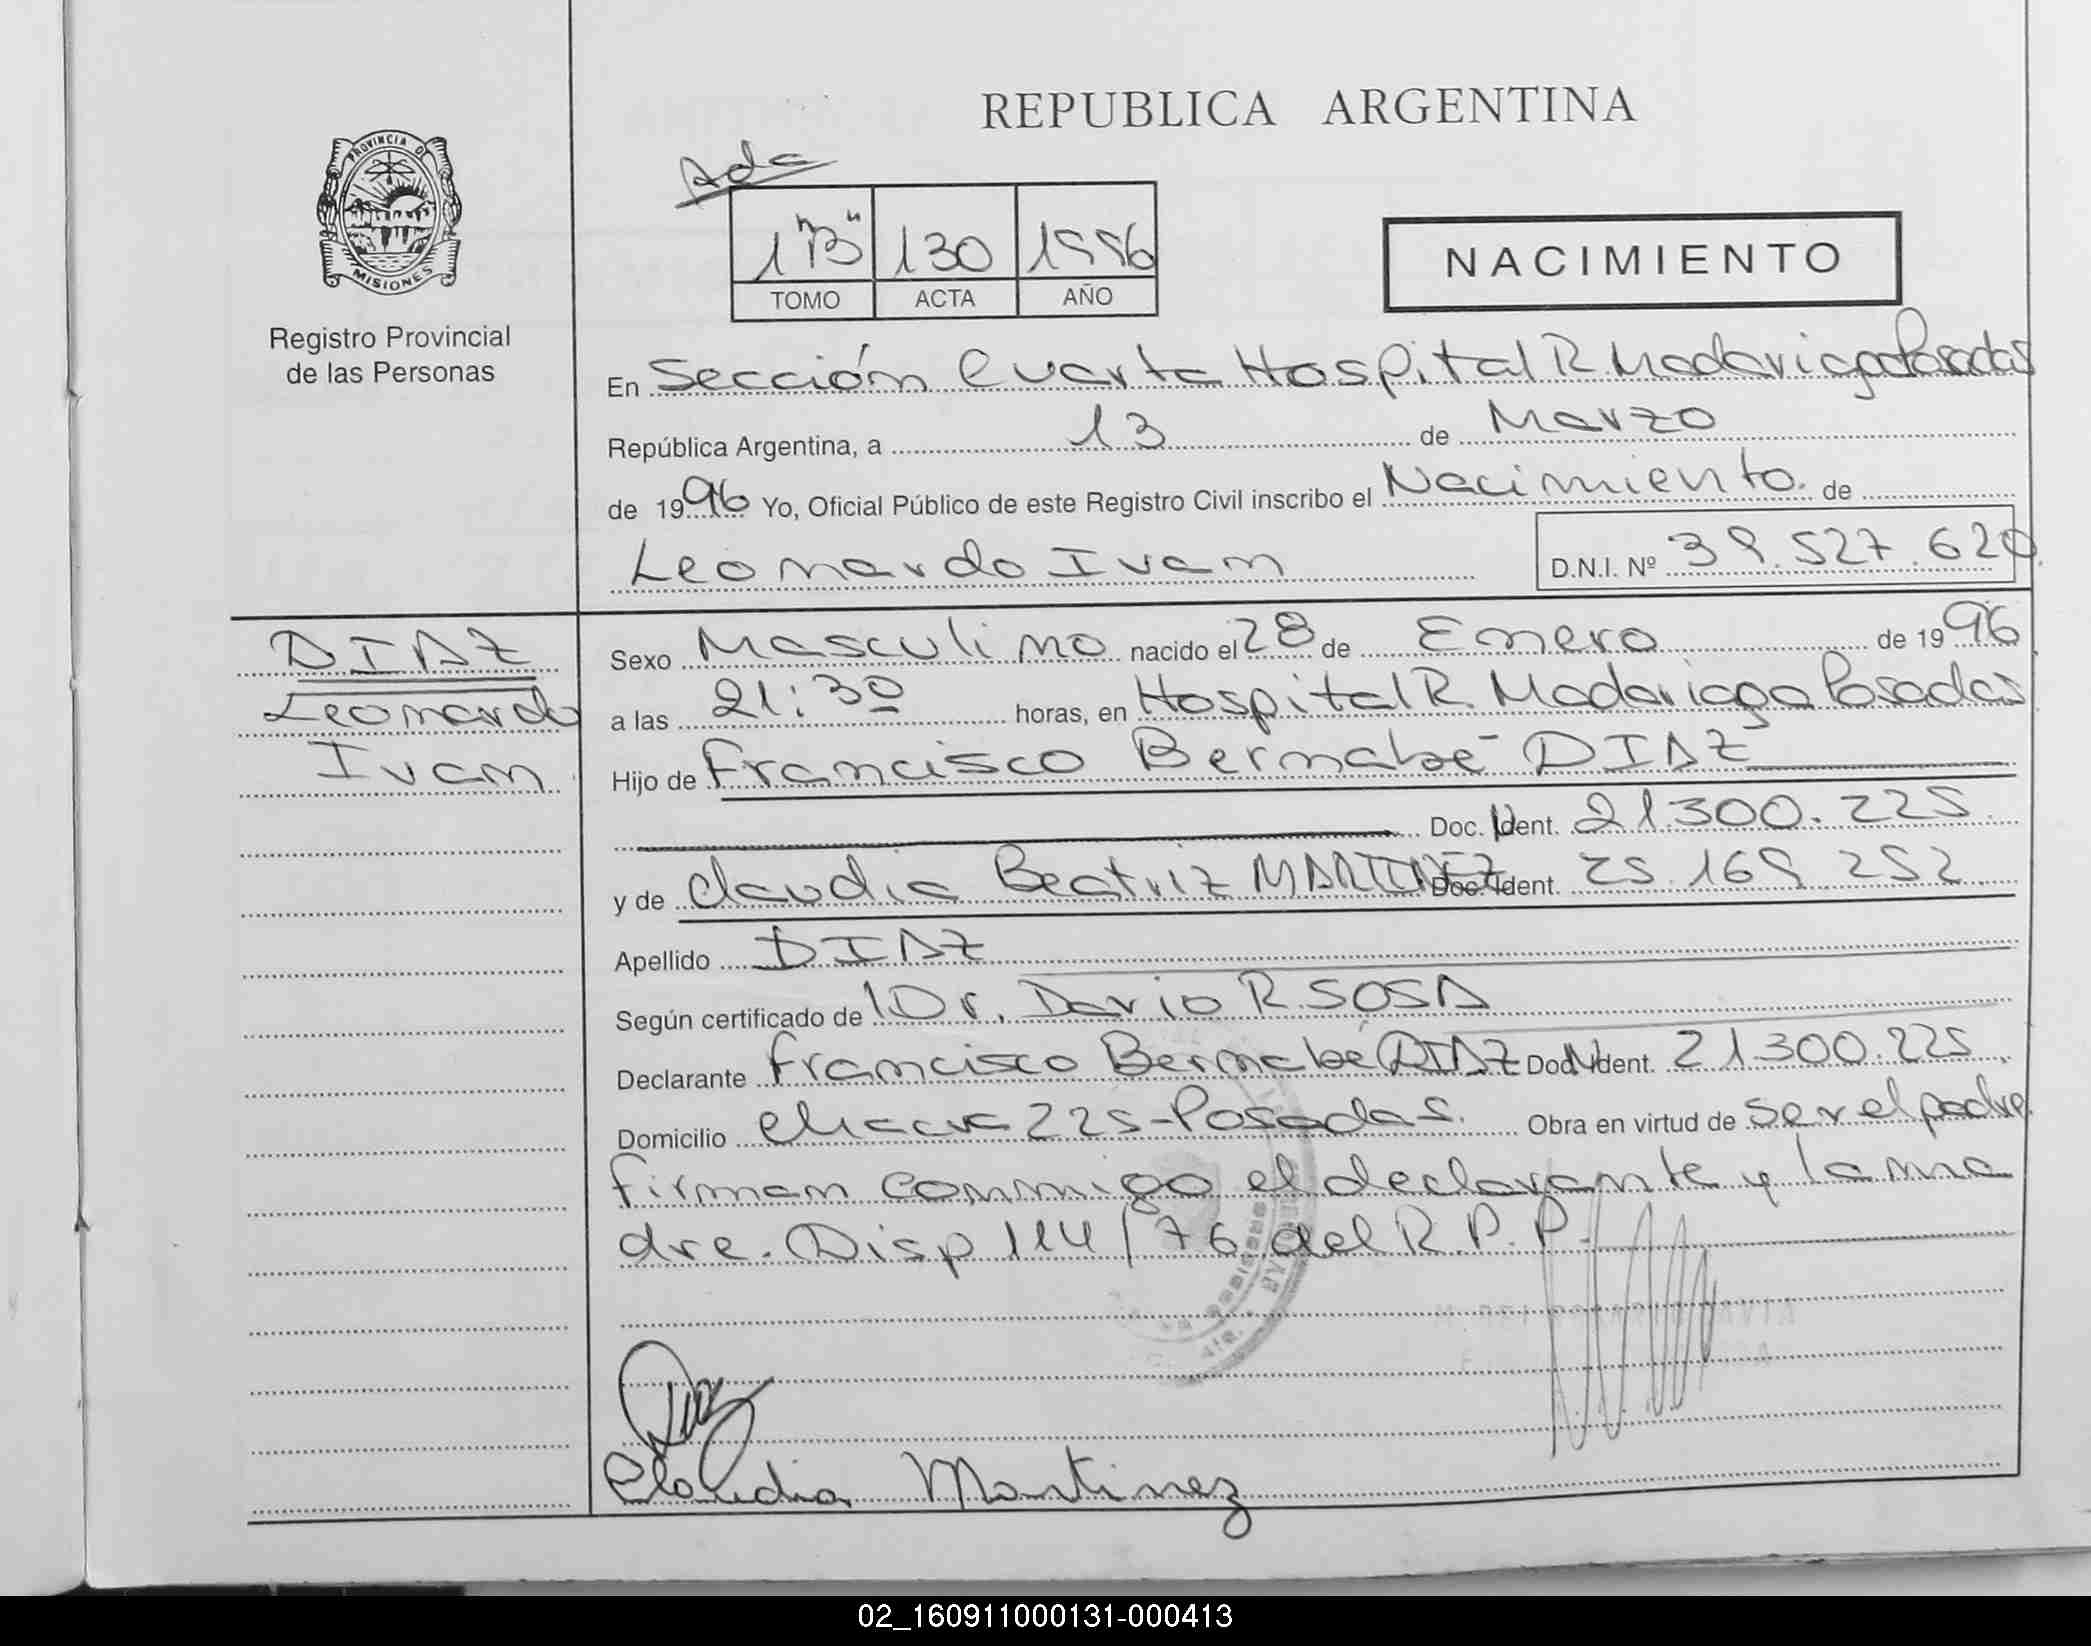 REPUBLICA ARGENTINA
PROVINCIA DE
MISIONES
Registro Provincial
de las Personas
1 "B" 130 1996
TOMO ACTA AÑO
NACIMIENTO
En Sección Cuarta Hospital R. Madariaga Posadas
República Argentina, a 13 de Marzo
de 1996 Yo, Oficial Público de este Registro Civil inscribo el Nacimiento. de
Leonardo Ivan D.N.I. Nº 39.527.620
DIAZ
Leonardo
Ivan
Sexo Masculino nacido el 28 de Enero de 1996
a las 21:30 horas, en Hospital R. Madariaga Posadas
Hijo de Francisco Bernabé DIAZ
Doc. Ident. 21.300.225
y de Claudia Beatriz MARTINEZ Doc. Ident. 25.169.252
Apellido DIAZ
Según certificado de Dr. Dario R. SOSA
Declarante Francisco Bernabé DIAZ Doc. Ident. 21.300.225
Domicilio 225-Posadas. Obra en virtud de ser el padre.
firman conmigo el declarante y la ma
dre. Disp 114/76 del R.P.P.
Diaz
Claudia Martinez
02_160911000131-000413